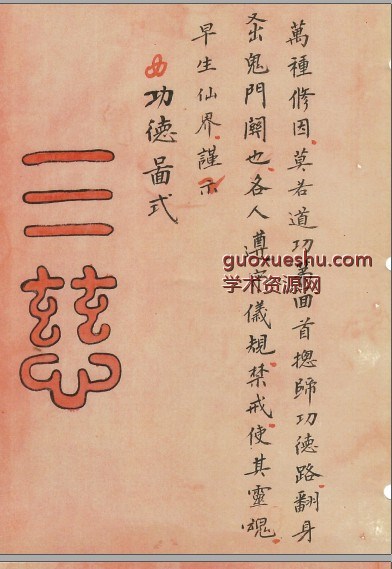 萬種修因莫若道功囬首揔師功德路翻身
出鬼門關也各人遵守儀規禁戒使其靈魂
早生仙界謹示
功德啚式
三慈
guoxueshu.com
学术资源网